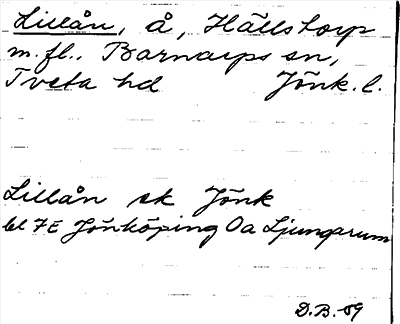 Lillån, å, Hällstorp
m.fl., Barnarps sn,
Tveta hd Jönk. l.
Lillån sk Jönk
bl 7E Jönköping Oa Ljungarum
D.B.-59